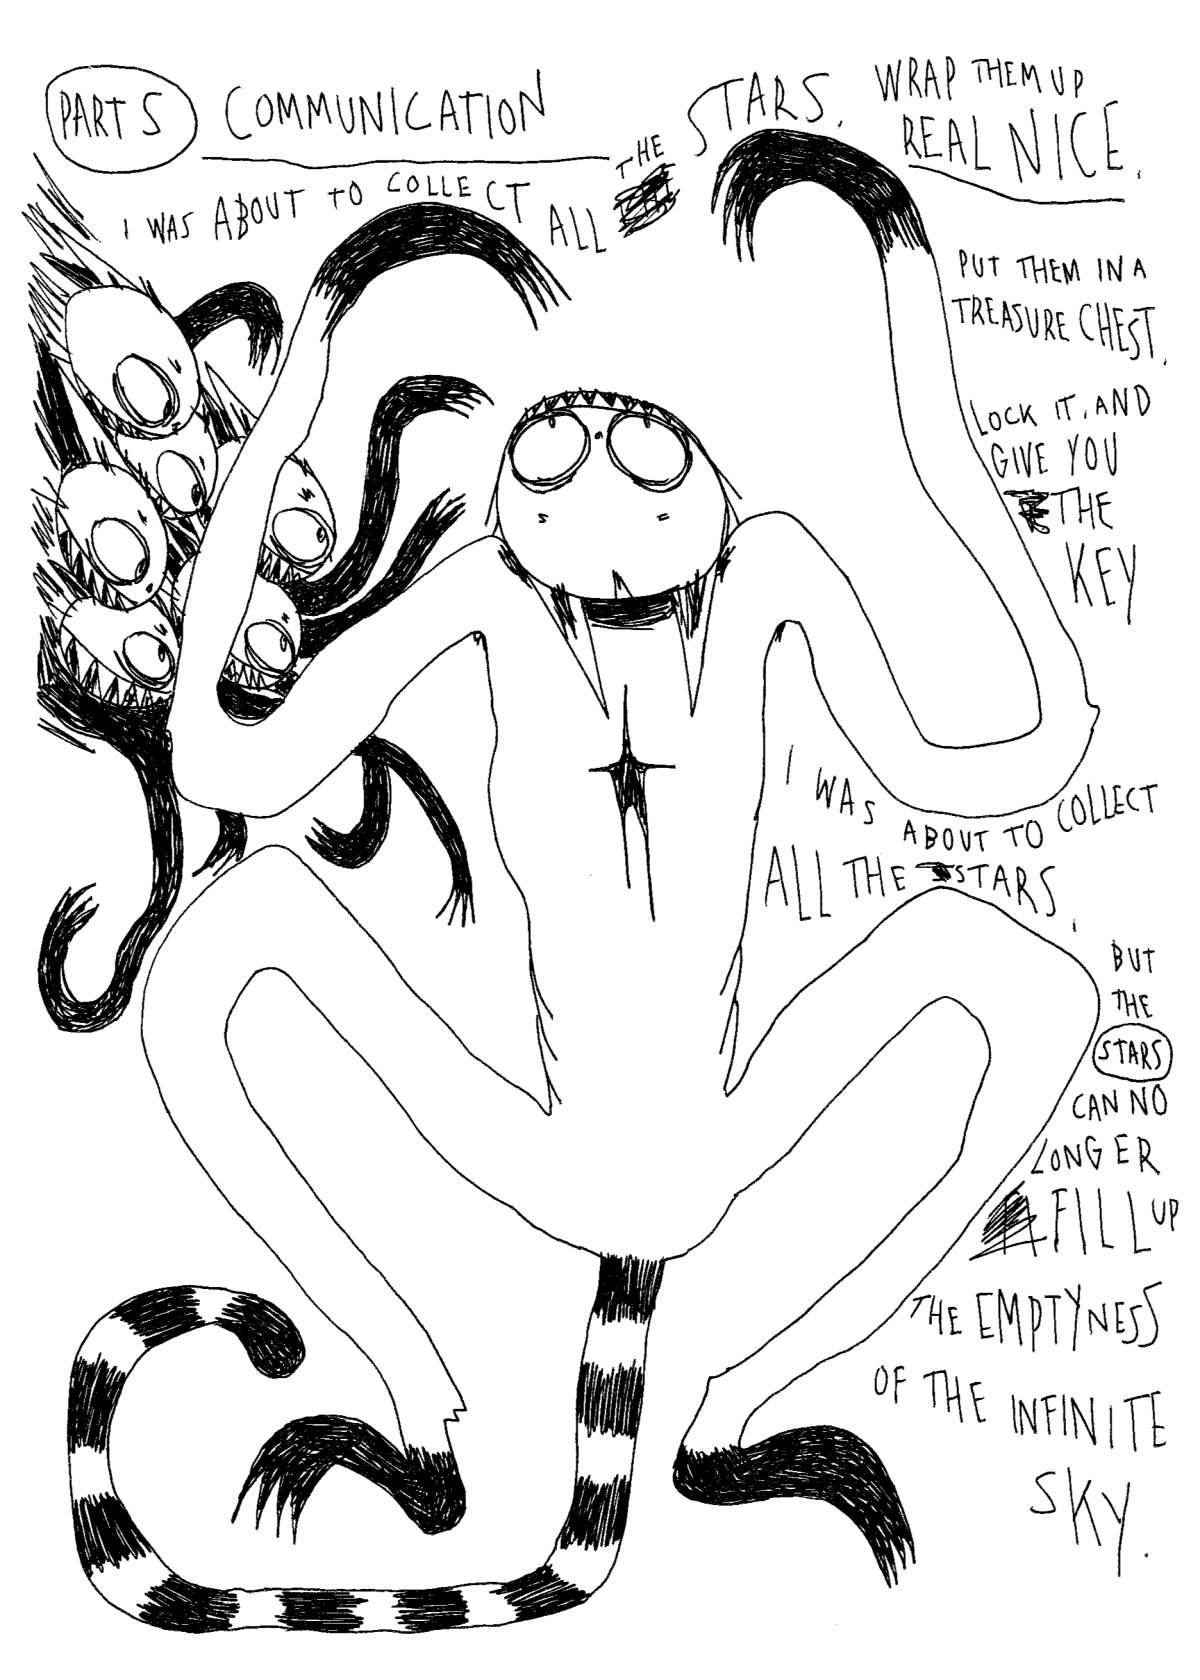 PART 5 COMMUNICATION
I WAS ABOUT TO COLLECT ALL THE STARS.
WRAP THEM UP
REAL NICE.
PUT THEM IN A
TREASURE CHEST.
LOCK IT, AND
GIVE YOU
THE
KEY
I WAS ABOUT TO COLLECT
ALL THE STARS.
BUT
THE
STARS
CAN NO
LONGER
FILL UP
THE EMPTYNESS
OF THE INFINITE
SKY.